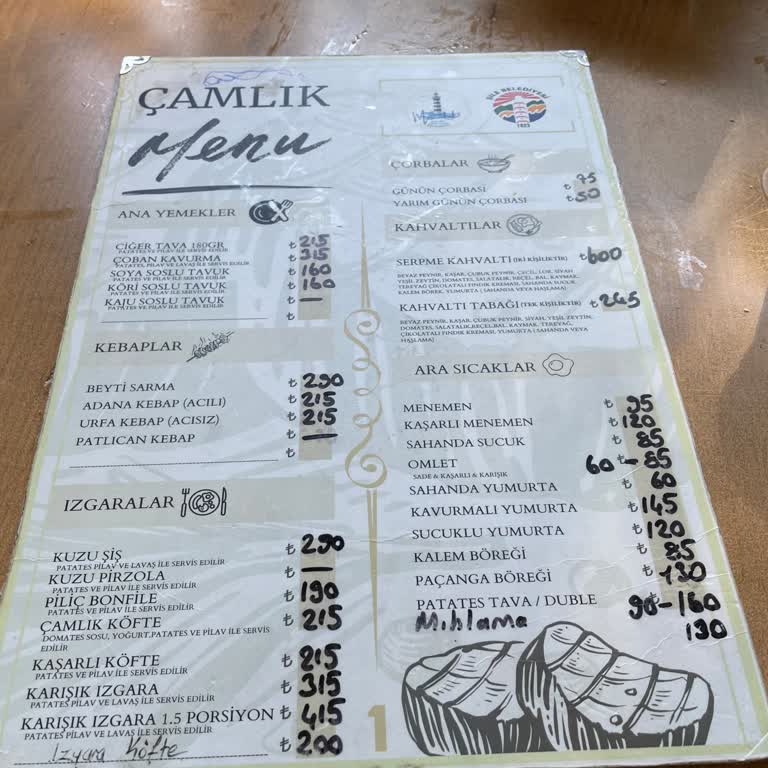 ÇAMLIK
Menu
ŞİLE BELEDİYESİ
1923
ANA YEMEKLER
CİĞER TAVA 180GR ₺ 215
PATATES VE PİLAV İLE SERVİS EDİLİR
ÇOBAN KAVURMA ₺ 315
PATATES, PİLAV VE LAVAŞ İLE SERVİS EDİLİR
SOYA SOSLU TAVUK ₺ 160
PATATES VE PİLAV İLE SERVİS EDİLİR
KÖRİ SOSLU TAVUK ₺ 160
PATATES VE PİLAV İLE SERVİS EDİLİR
KAJU SOSLU TAVUK ₺ —
PATATES VE PİLAV İLE SERVİS EDİLİR
₺
KEBAPLAR
BEYTİ SARMA ₺ 290
ADANA KEBAP (ACILI) ₺ 215
URFA KEBAP (ACISIZ) ₺ 215
PATLICAN KEBAP ₺ —
₺
IZGARALAR
KUZU ŞİŞ ₺ 290
PATATES PİLAV VE LAVAŞ İLE SERVİS EDİLİR
KUZU PİRZOLA ₺ —
PATATES PİLAV VE LAVAŞ İLE SERVİS EDİLİR
PİLİÇ BONFİLE ₺ 190
PATATES PİLAV VE LAVAŞ İLE SERVİS EDİLİR
ÇAMLIK KÖFTE ₺ 215
DOMATES SOSU, YOĞURT.PATATES VE PİLAV İLE SERVİS
EDİLİR
KAŞARLI KÖFTE ₺ 215
PATATES VE PİLAV İLE SERVİS EDİLİR
KARIŞIK IZGARA ₺ 315
PATATES PİLAV VE LAVAŞ İLE SERVİS EDİLİR
KARIŞIK IZGARA 1.5 PORSİYON ₺ 415
PATATES PİLAV VE LAVAŞ İLE SERVİS EDİLİR
Izgara Köfte ₺ 200
ÇORBALAR
GÜNÜN ÇORBASI ₺ 75
YARIM GÜNÜN ÇORBASI ₺ 50
KAHVALTILAR
SERPME KAHVALTI (İKİ KİŞİLİKTİR) ₺ 600
BEYAZ PEYNİR, KAŞAR, ÇUBUK PEYNİR, ÇEÇİL, LOR, SİYAH
YEŞİL ZEYTİN, DOMATES, SALATALIK, REÇEL, BAL, KAYMAK,
TEREYAĞ ÇİKOLATALI FINDIK KREMASI, SAHANDA SUCUK
KALEM BÖREK, YUMURTA ( SAHANDA VEYA HAŞLAMA)
KAHVALTI TABAĞI (TEK KİŞİLİKTİR) ₺ 245
BEYAZ PEYNİR, KAŞAR, ÇUBUK PEYNİR, SİYAH, YEŞİL ZEYTİN,
DOMATES, SALATALIK,REÇEL,BAL, KAYMAK, TEREYAĞ,
ÇİKOLATALI FINDIK KREMASI, YUMURTA ( SAHANDA VEYA
HAŞLAMA)
ARA SICAKLAR
MENEMEN ₺ 95
KAŞARLI MENEMEN ₺ 120
SAHANDA SUCUK ₺ 85
OMLET 60 - 85
SADE & KAŞARLI & KARIŞIK
SAHANDA YUMURTA ₺ 60
KAVURMALI YUMURTA ₺ 145
SUCUKLU YUMURTA ₺ 120
KALEM BÖREĞİ ₺ 85
PAÇANGA BÖREĞİ ₺ 130
PATATES TAVA / DUBLE 90 - 160
Mıhlama 190
1